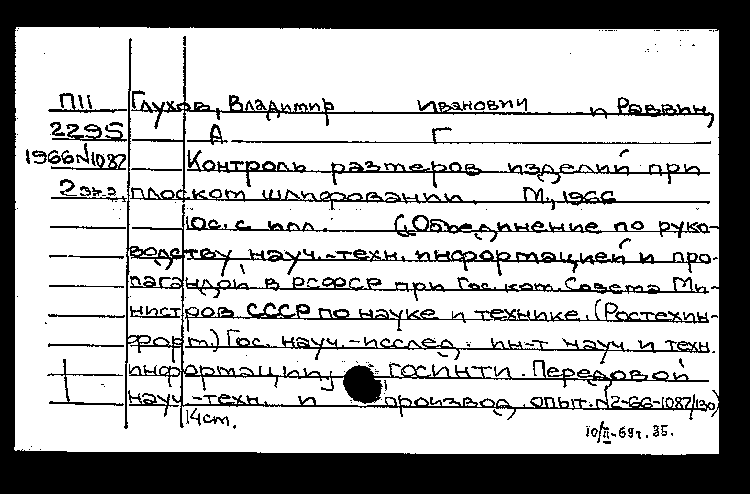 П11 Глухов, Владимир Иванович и Раввин,
2295 А Г
1966N1087 Контроль размеров изделий при
2экз. плоском шлифовании. М., 1966
10с. с илл. (Объединение по руко-
водству науч.-техн. информацией и про-
пагандой в РСФСР при Гос. ком. Совета Ми-
нистров СССР по науке и технике. (Ростехин-
форм) Гос. науч.-исслед. ин-т науч. и техн.
информации, ГОСИНТИ. Передовой
науч.-техн. и производ. опыт. N2-66-1087/130)
14см.
10/II-69г. 35.